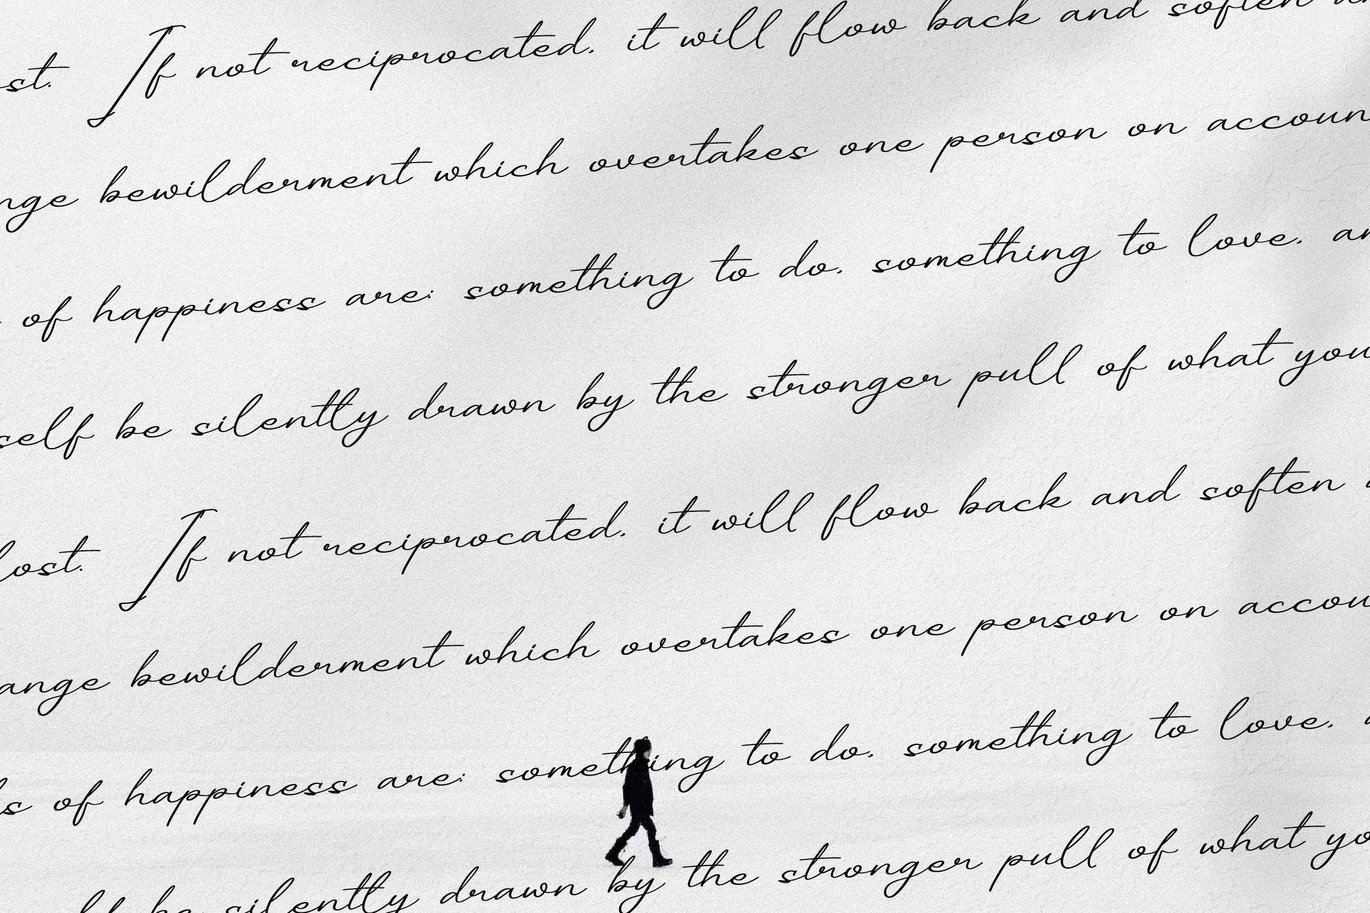 ost. If not reciprocated, it will flow back and soften
nge bewilderment which overtakes one person on accoun
of happiness are: something to do, something to love, an
self be silently drawn by the stronger pull of what you
lost. If not reciprocated, it will flow back and soften
ange bewilderment which overtakes one person on accou
ls of happiness are: something to do, something to love,
be silently drawn by the stronger pull of what yo